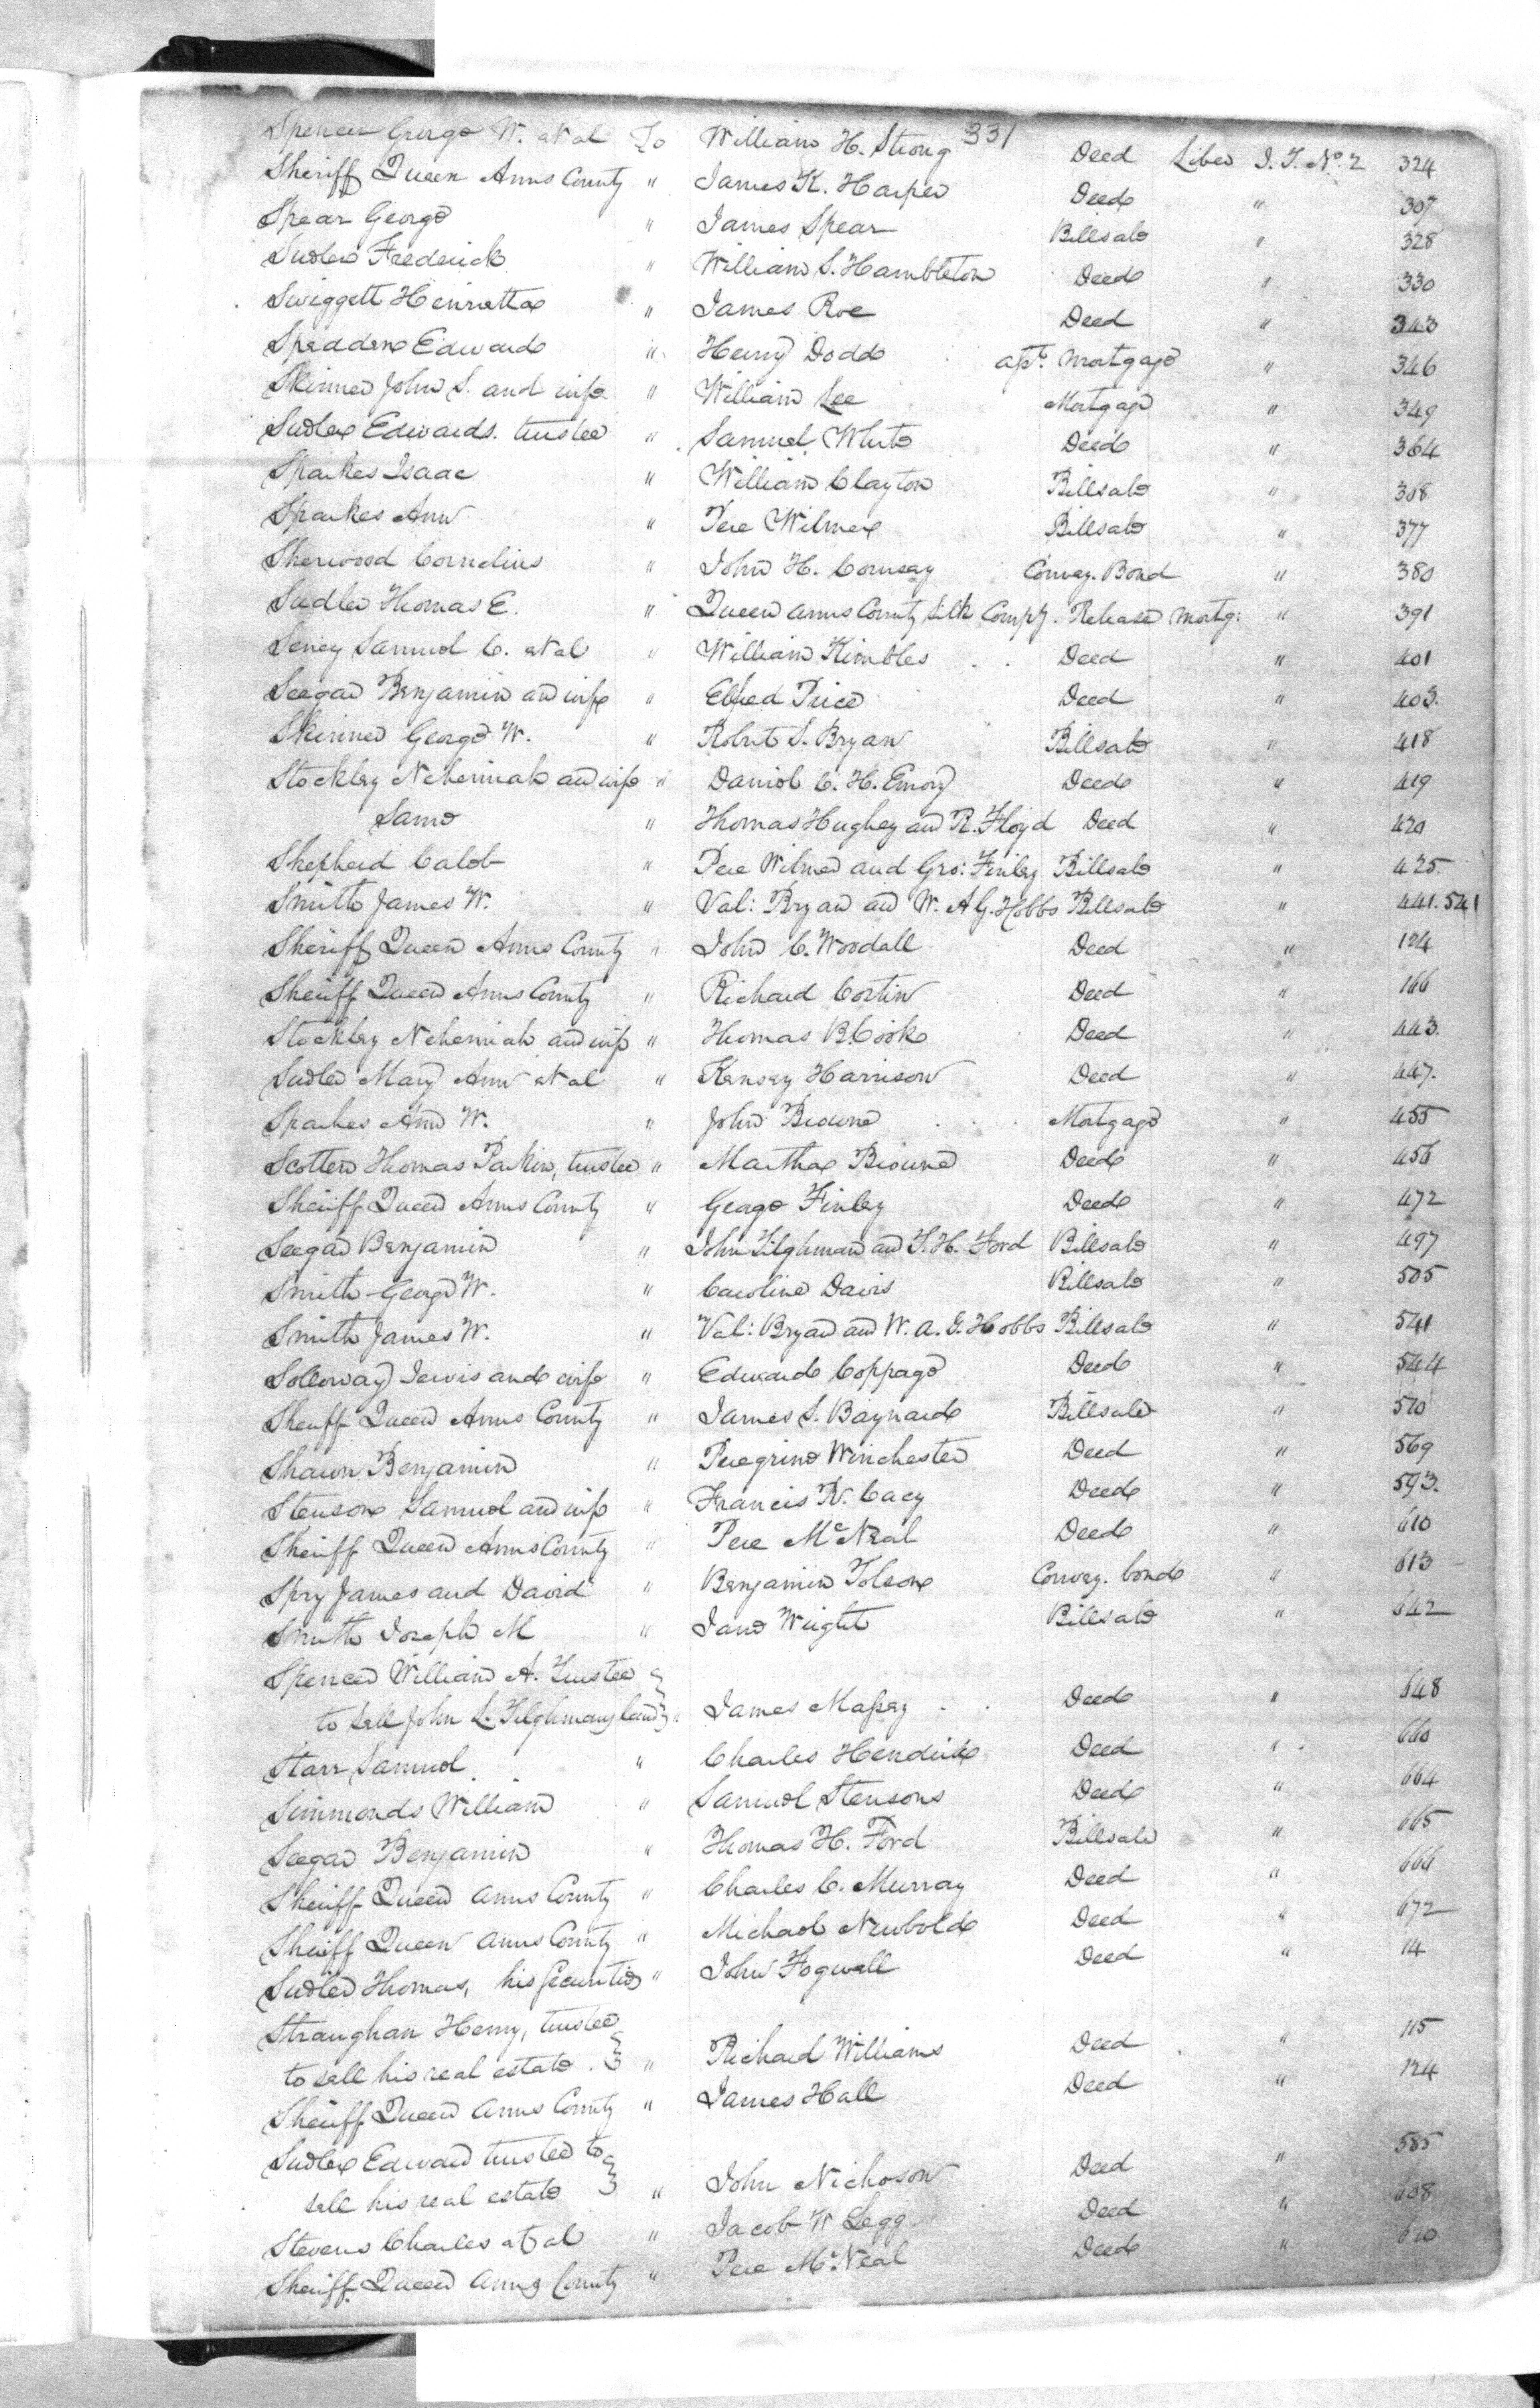 331
Spencer George W. et al To William H. Strong Deed Liber J.T. No. 2 324
Sheriff Queen Anns County " James K. Harper Deed " 307
Spear George " James Spear Billsale " 328
Sudler Frederick " William S. Hambleton Deed " 330
Swiggett Henrietta " James Roe Deed " 343
Spedden Edward " Henry Dodd apt. Mortgage " 346
Skinner John S. and wife " William Lee Mortgage " 349
Sudler Edward S. trustee " Samuel White Deed " 364
Sparkes Isaac " William Clayton Billsale " 368
Sparkes Ann " Pere Wilmer Billsale " 377
Sherwood Cornelius " John H. Convey. Bond " 380
Sudler Thomas E. " Queen Anns County Silk Compy. Release Mortg: " 391
Seney Samuel C. et al " William Kimbles Deed " 401
Seegar Benjamin and wife " Elfred Price Deed " 403.
Skinner George W. " Robert S. Bryan Billsale " 418
Stockley Nehemiah and wife " Daniel C. H. Emory Deed " 419
Same " Thomas Hughey and R. Floyd Deed " 420
Shepherd Caleb " Pere Wilmer and Geo: Finley Billsale " 425
Smith James W. " Val: Bryan and W. A G. Hobbs Billsale " 441. 541
Sheriff Queen Anns County " John C. Woodall Deed " 124
Sheriff Queen Anns County " Richard Costin Deed " 166
Stockley Nehemiah and wife " Thomas B. Cook Deed " 443.
Sudler Mary Ann et al " Kensey Harrison Deed " 447.
Sparkes Ann W. " John Browne Mortgage " 455
Scotten Thomas Parkin, trustee " Martha Browne Deed " 456
Sheriff Queen Anns County " George Finley Deed " 472
Seegar Benjamin " John Tilghman and T. H. Ford Billsale " 497
Smith George W. " Caroline Davis Billsale " 505
Smith James W. " Val: Bryan and W. A. G. Hobbs Billsale " 541
Solloway Jervis and wife " Edward Coppage Deed " 544
Sheriff Queen Anns County " James S. Baynard Billsale " 520
Shawn Benjamin " Peregrine Winchester Deed " 569
Stenson Samuel and wife " Francis R. Cacy Deed " 593.
Sheriff Queen Anns County " Pere McNeal Deed " 610
Spry James and David " Benjamin Tolson Convey. bond " 613
Smith Joseph M " Jane Wright Billsale " 642
Spencer William A. Trustee
to sell John L. Tilghmans land " James Massey Deed " 648
Starr Samuel " Charles Hendrix Deed " 660
Simmonds William " Samuel Stensons Deed " 664
Seegar Benjamin " Thomas H. Ford Billsale " 665
Sheriff Queen Anns County " Charles C. Murray Deed " 666
Sheriff Queen Anns County " Michael Newbold Deed " 672
Sudler Thomas, his Securities " John Fogwell Deed " 14
Straughan Henry, trustee
to sell his real estate. " Richard Williams Deed " 115
Sheriff Queen Anns County " James Hall Deed " 124
Sudler Edward trustee to
sell his real estate " John Nichoson Deed " 585
Stevens Charles et al " Jacob W Legg Deed " 608
Sheriff Queen Anns County " Pere McNeal Deed " 610